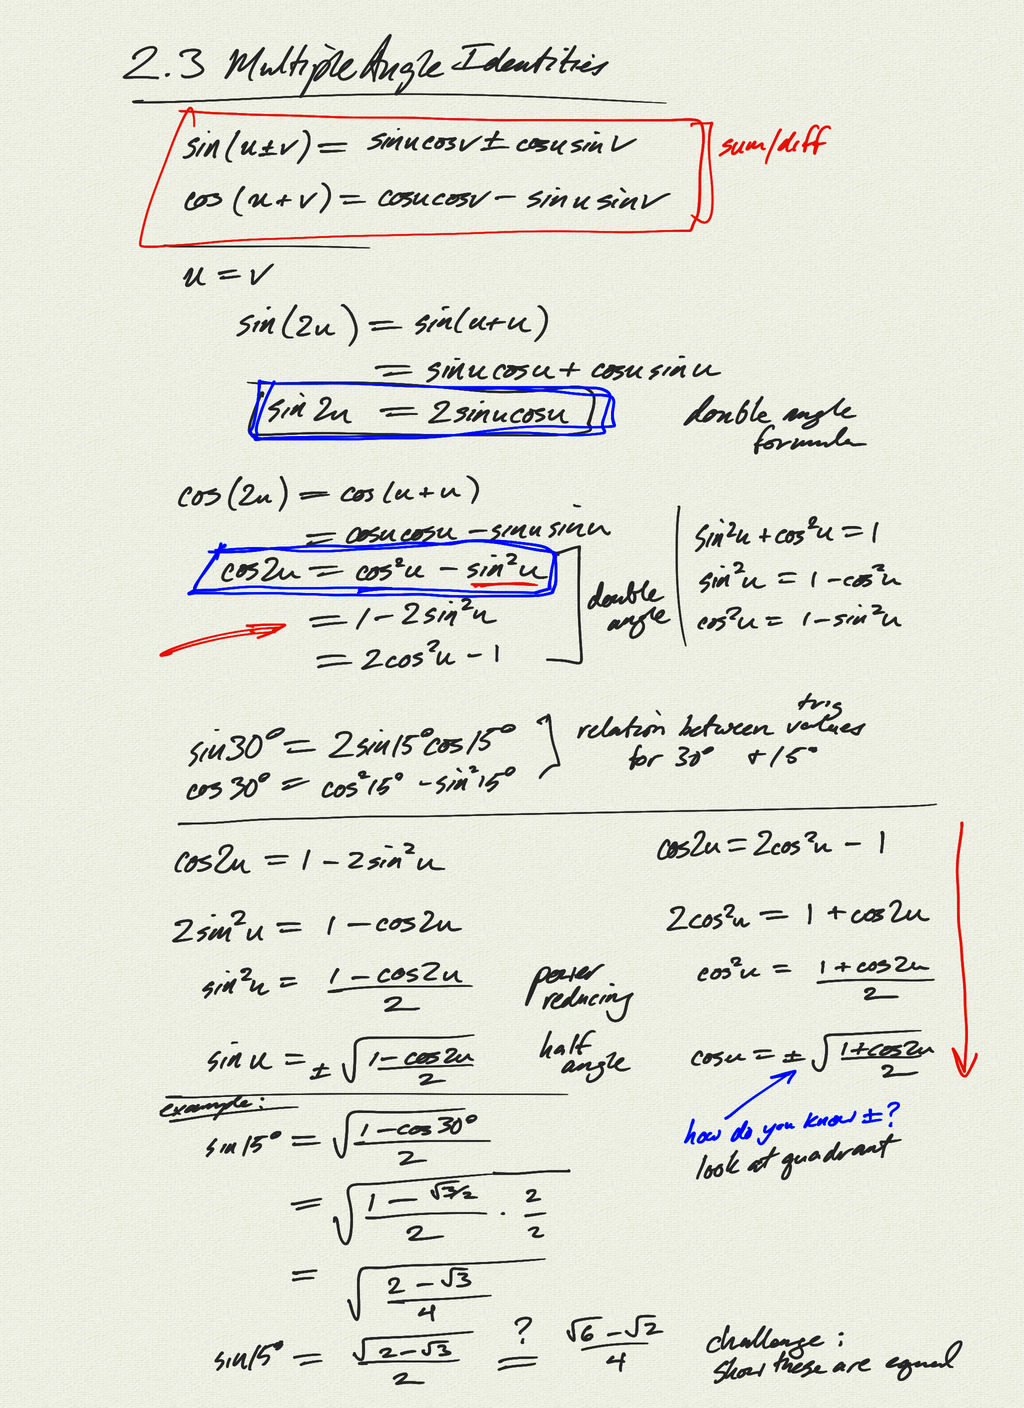 2.3 Multiple Angle Identities
sin(u±v) = sinucosv ± cosusinv
sum/diff
cos(u+v) = cosucosv − sinusinv
u = v
sin(2u) = sin(u+u)
= sinucosu + cosusinu
sin2u = 2sinucosu
double angle
formula
cos(2u) = cos(u+u)
= cosucosu − sinusinu
cos2u = cos²u − sin²u
= 1 − 2sin²u
= 2cos²u − 1
double
angle
sin²u + cos²u = 1
sin²u = 1 − cos²u
cos²u = 1 − sin²u
sin30° = 2sin15°cos15°
cos30° = cos²15° − sin²15°
trig
relation between values
for 30° + 15°
cos2u = 1 − 2sin²u
2sin²u = 1 − cos2u
sin²u = (1 − cos2u)/2
power
reducing
sinu = ±√((1 − cos2u)/2)
half
angle
cos2u = 2cos²u − 1
2cos²u = 1 + cos2u
cos²u = (1 + cos2u)/2
cosu = ±√((1 + cos2u)/2)
how do you know ±?
look at quadrant
example:
sin15° = √((1 − cos30°)/2)
= √((1 − √3/2)/2 · 2/2)
= √((2 − √3)/4)
sin15° = √(2 − √3)/2 =? (√6 − √2)/4
challenge:
show these are equal